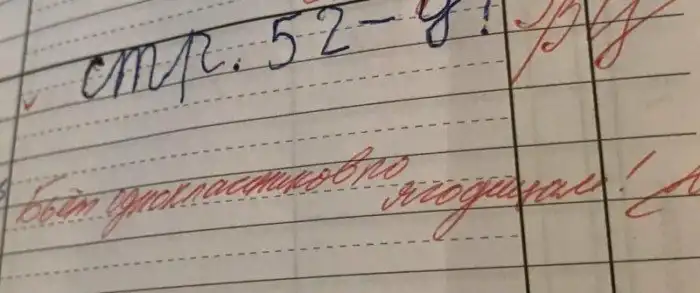 стр. 52 - у!
Бьёт одноклассников по
ягодицам!